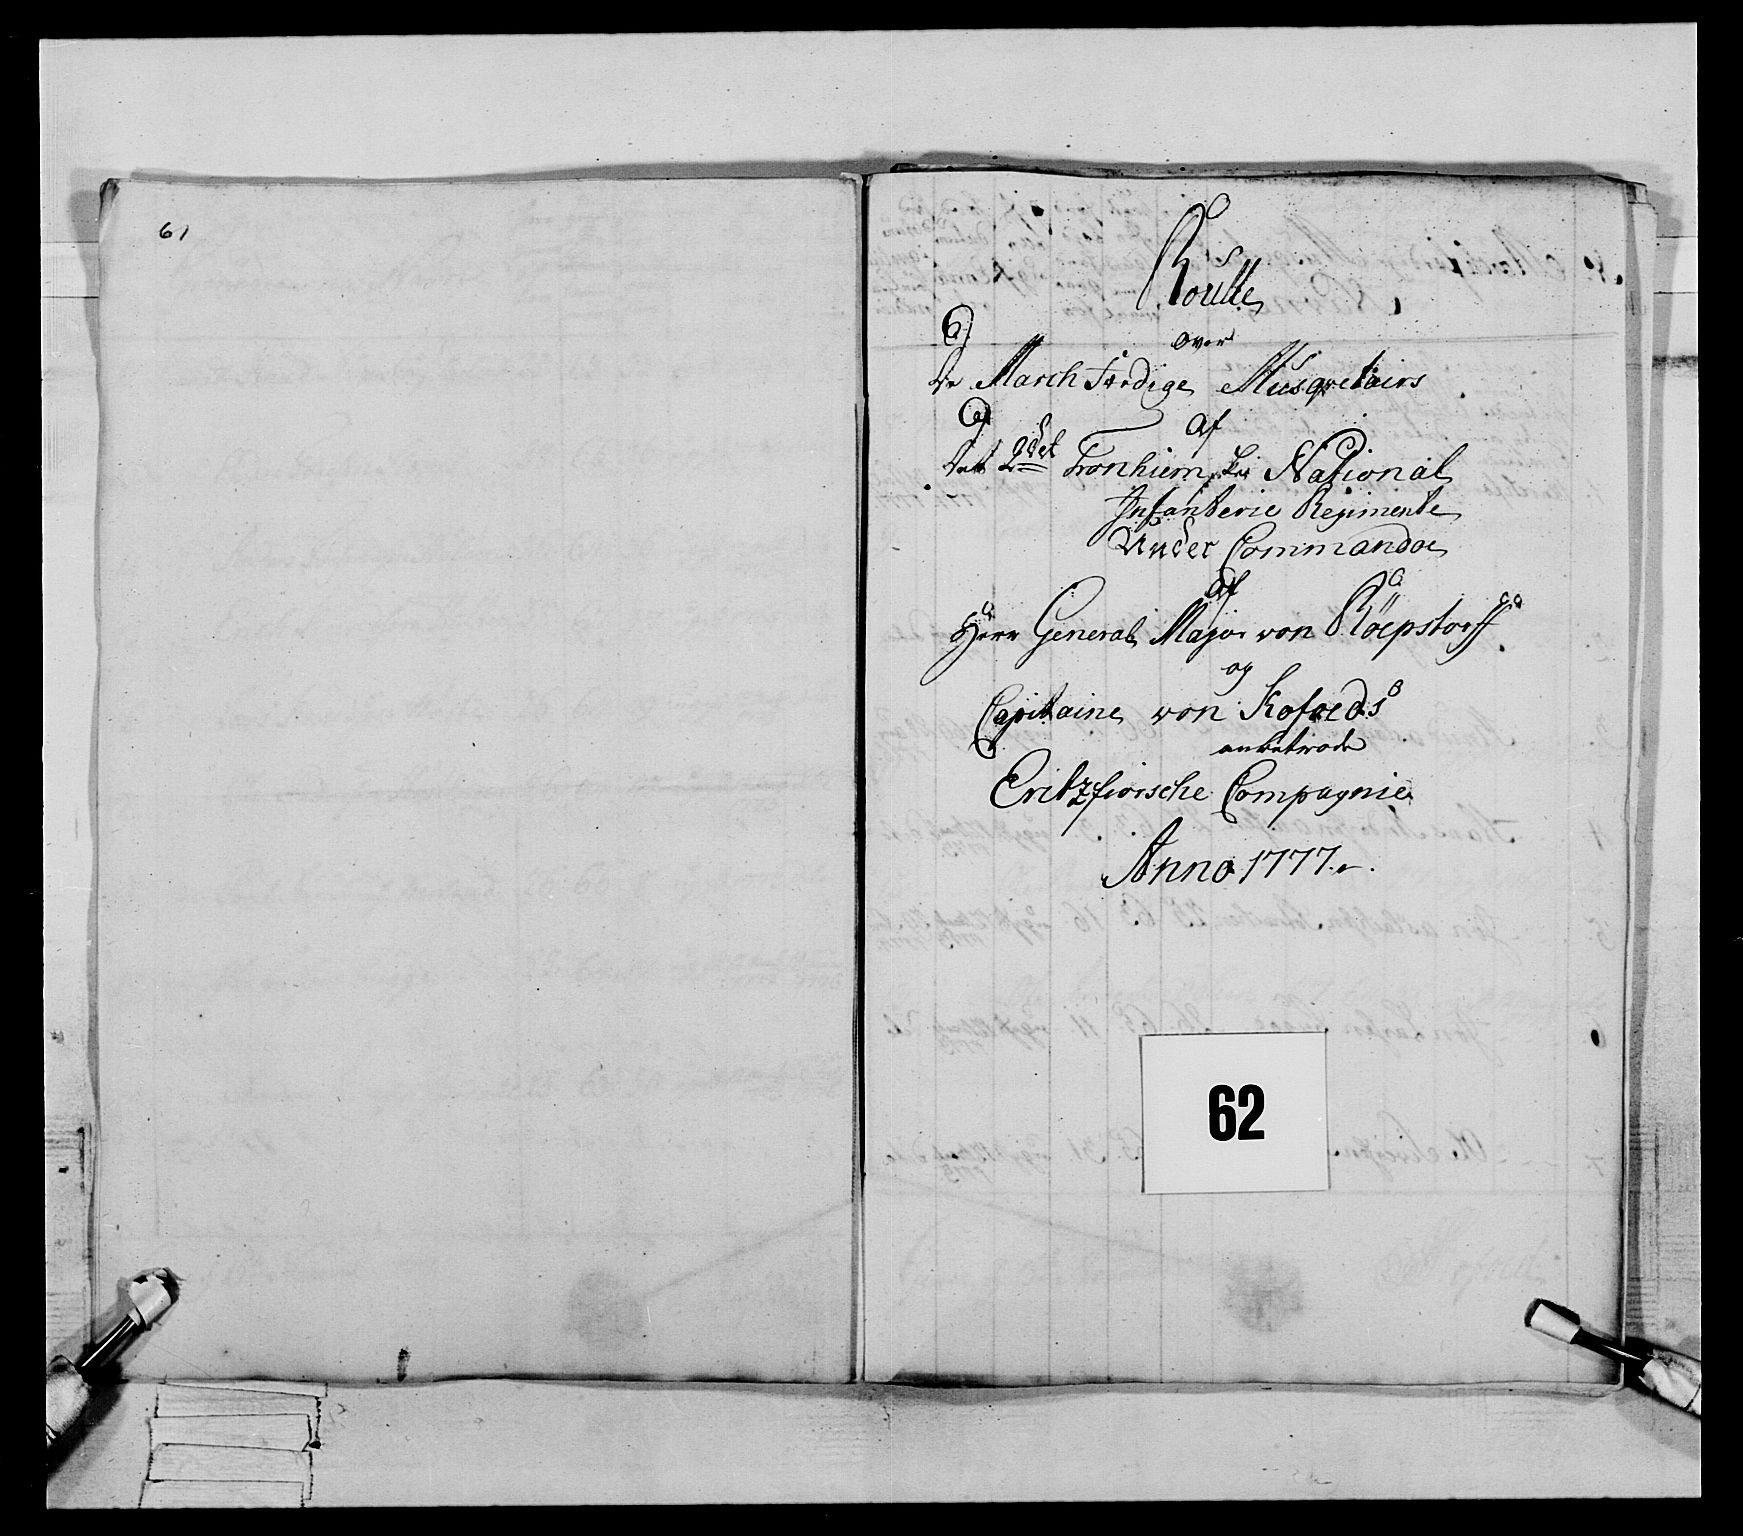 61
Roulle
over
De March Ferdige Musqvetairs
Af
Dett 2det Tronhiemske National
Infanterie Regimente
Under Commando
Af
Herr General Major von Röepstorff
og
Capitaine von Kofoeds
anbetroede
Eritzfiorsche Compagnie
Anno 1777
62